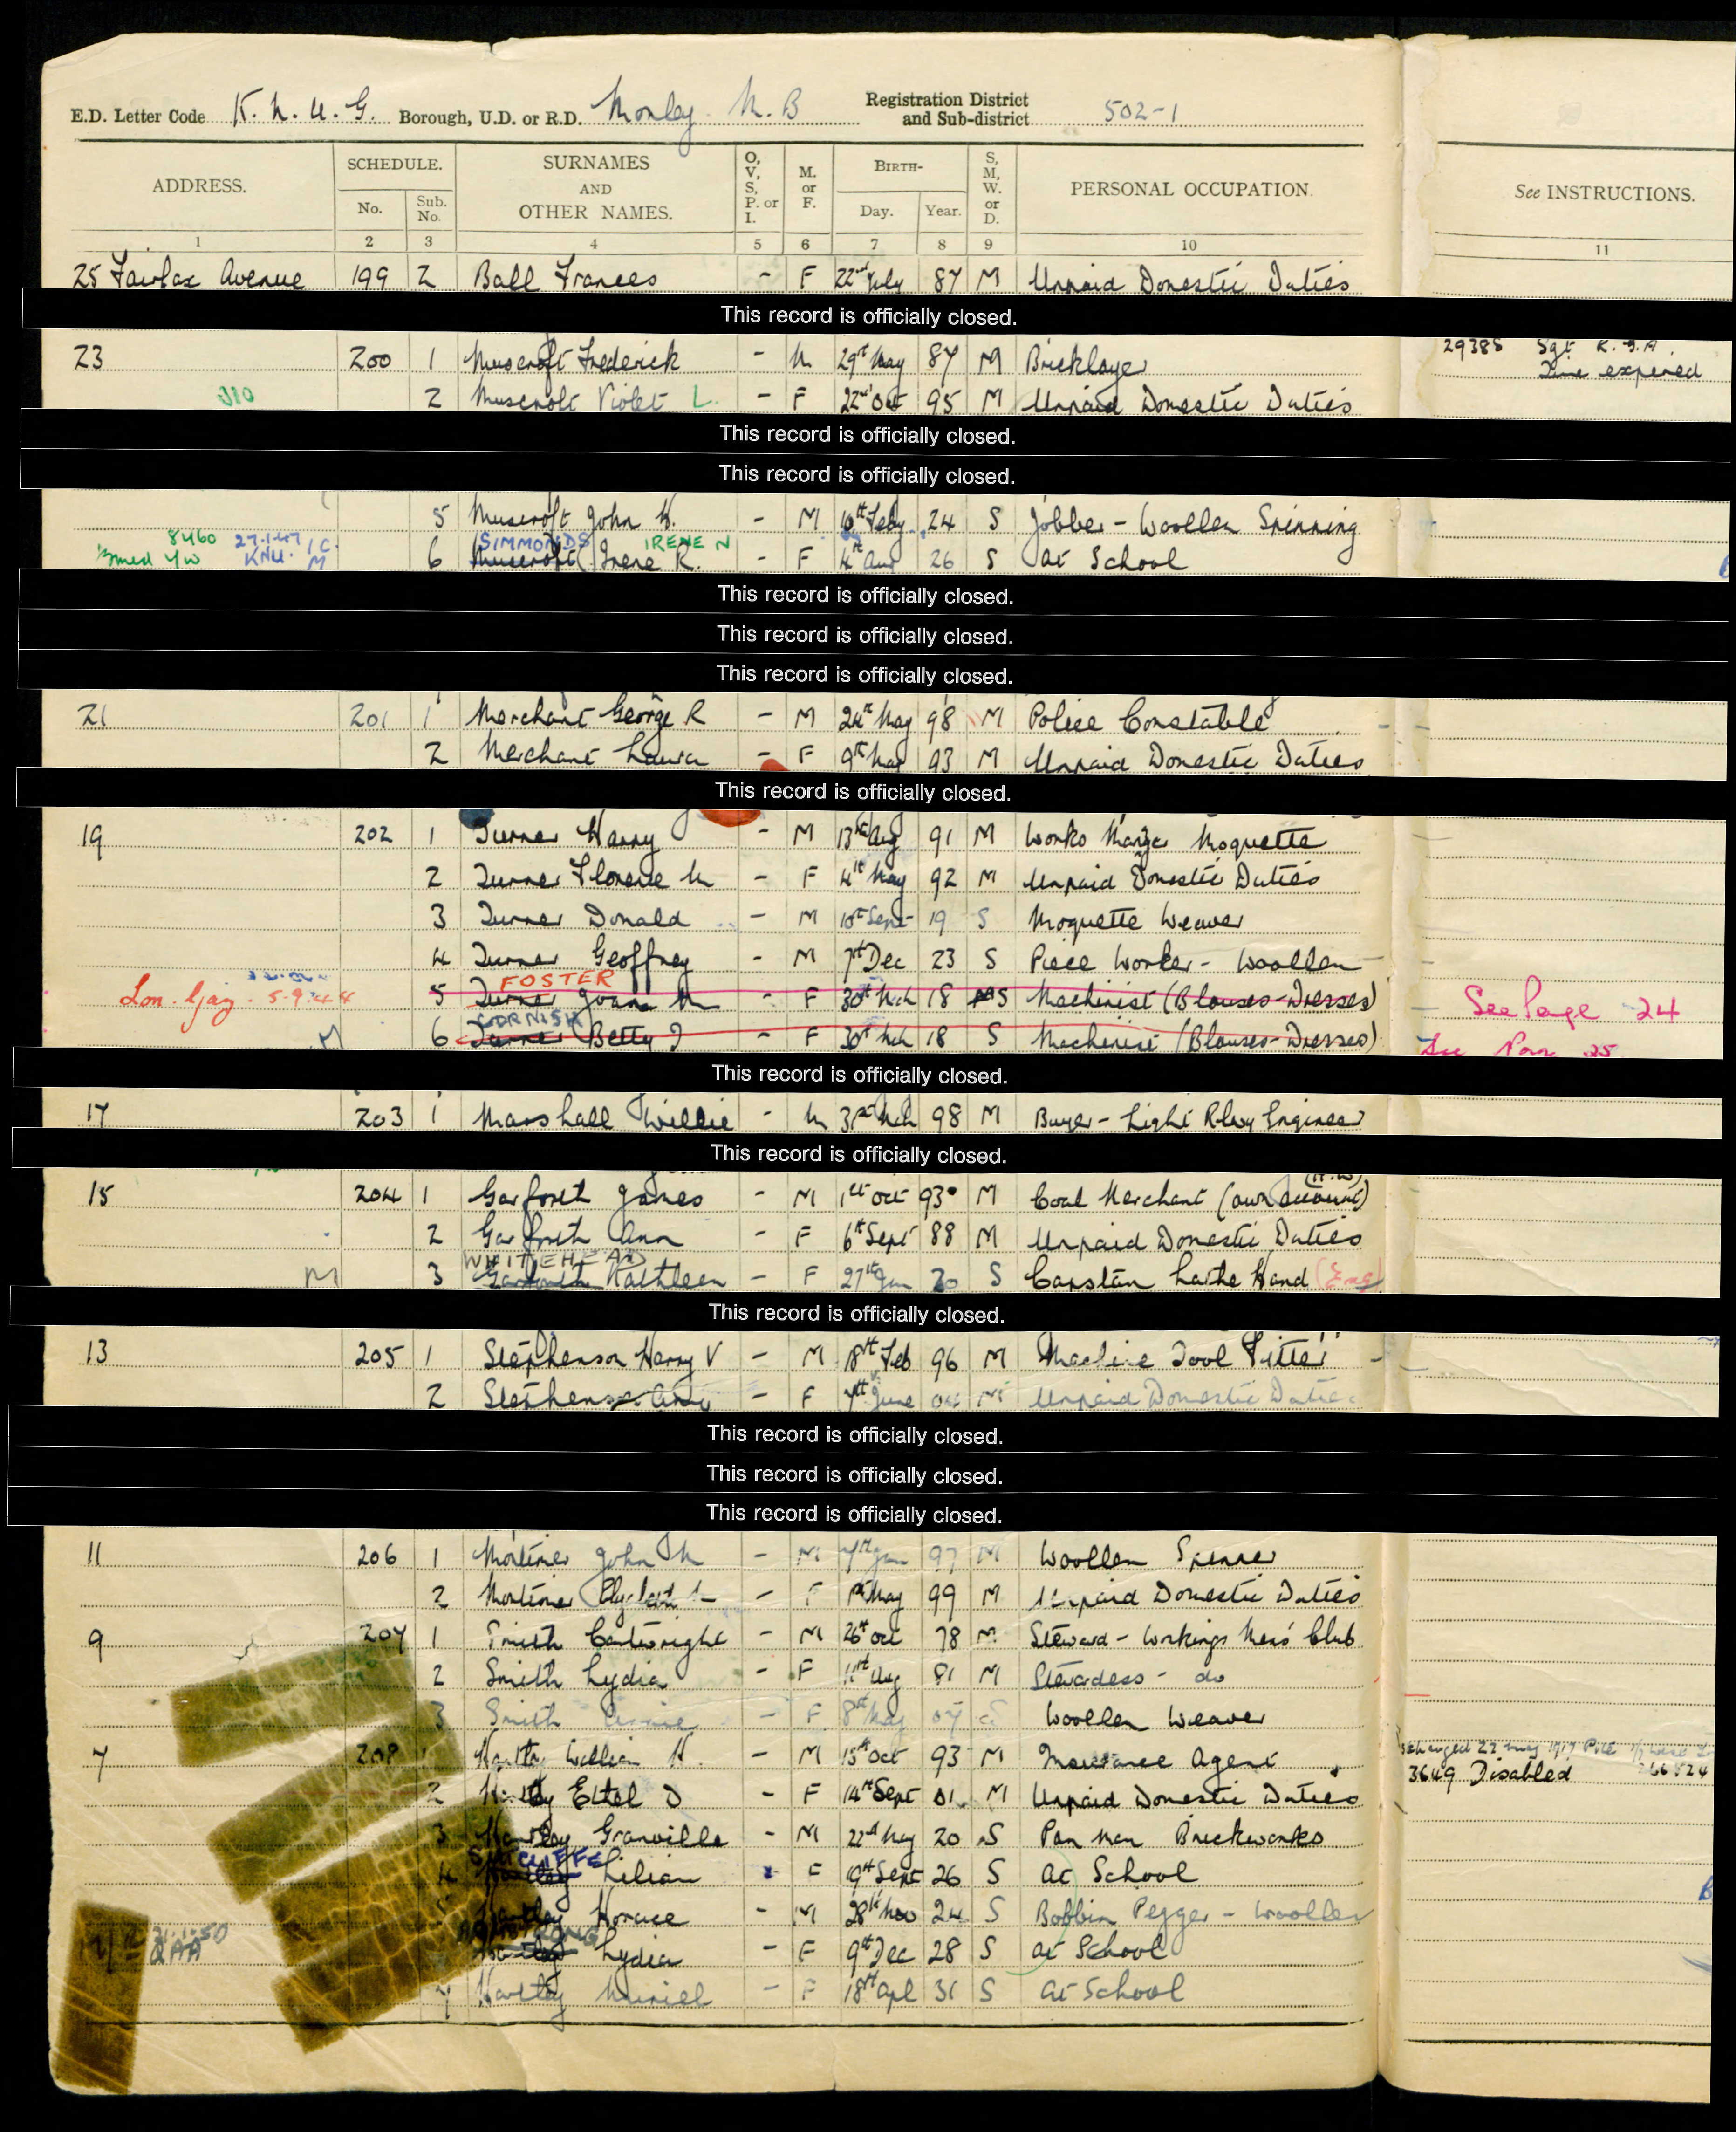 E.D. Letter Code K. N. U. G. Borough, U.D. or R.D. Morley M. B Registration District and Sub-district 502-1
ADDRESS. SCHEDULE. No. Sub. No. SURNAMES AND OTHER NAMES. O, V, S, P. or I. M. or F. BIRTH- Day. Year. S, M, W. or D. PERSONAL OCCUPATION. See INSTRUCTIONS.
1 2 3 4 5 6 7 8 9 10 11
25 Fairfax Avenue 199 2 Ball Frances - F 22nd July 87 M Unpaid Domestic Duties
This record is officially closed.
23 200 1 Muscroft Frederick - M 29th May 87 M Bricklayer 29385 Sgt R.G.A.
Time expired
2 Muscroft Violet L. - F 22nd Oct 95 M Unpaid Domestic Duties
This record is officially closed.
This record is officially closed.
5 Muscroft John W. - M 10th Feby 24 S Jobber - Woollen Spinning
8460 27.1.47 SIMMONDS IRENE N
KNU. M 6 Muscroft Irene R. - F 4th 26 S At School
This record is officially closed.
This record is officially closed.
This record is officially closed.
21 201 1 Merchant George R - M 24th May 98 M Police Constable
2 Merchant Laura - F 9th Mar 93 M Unpaid Domestic Duties
This record is officially closed.
19 202 1 Turner Harry - M 13th Aug 91 M Works Manager Moquette
2 Turner Florence M - F 4th May 92 M Unpaid Domestic Duties
3 Turner Donald - M 10th Sept 19 S Moquette Weaver
4 Turner Geoffrey - M 7th Dec 23 S Piece Worker - Woollen
FOSTER
5.9.44 5 Turner M - F 30th Mch 18 S Machinist (Blouses-Dresses) See Page 24
CORNISH
M 6 Turner Betty J - F 30th Mch 18 S Machinist (Blouses-Dresses) See Page 25
This record is officially closed.
17 203 1 Marshall Willie - M Mch 98 M Buyer - Light Rlwy Engineer
This record is officially closed.
15 204 1 Garforth James - M 1st Oct 93 M Coal Merchant (own account)
2 Garforth Ann - F 6th Sept 88 M Unpaid Domestic Duties
WHITEHEAD
M 3 Garforth Kathleen - F 27th Jan 20 S Capstan Lathe Hand (Eng)
This record is officially closed.
13 205 1 Stephenson Harry V - M 18th Feb 96 M Machine Tool Fitter
2 Stephenson - F 7th June 04 M Unpaid Domestic Duties
This record is officially closed.
This record is officially closed.
This record is officially closed.
11 206 1 Mortimer John M - M 7th Jan 97 M Woollen Spinner
2 Mortimer - F May 99 M Unpaid Domestic Duties
9 207 1 Smith Cartwright - M 26th Oct 78 M Steward - Workings Mens' Club
2 Smith Lydia - F 11th Aug 81 M Stewardess - do
3 Smith - F 8th May 07 S Woollen Weaver
7 208 1 Hartley William H. - M 15th Oct 93 M Insurance Agent
3649 Disabled
2 Hartley Ethel D - F 14th Sept 01 M Unpaid Domestic Duties
3 Hartley Granville - M 22nd May 20 S Pan Man Brickworks
SUTCLIFFE
4 Hartley Lilian F 19th Sept 26 S At School
5 Hartley Horace - M 28th Nov 24 S Bobbin Pegger - Woollen
ARMSTRONG
QAA Hartley Lydia - F 9th Dec 28 S At School
7 Hartley Muriel - F 18th Apl 31 S At School